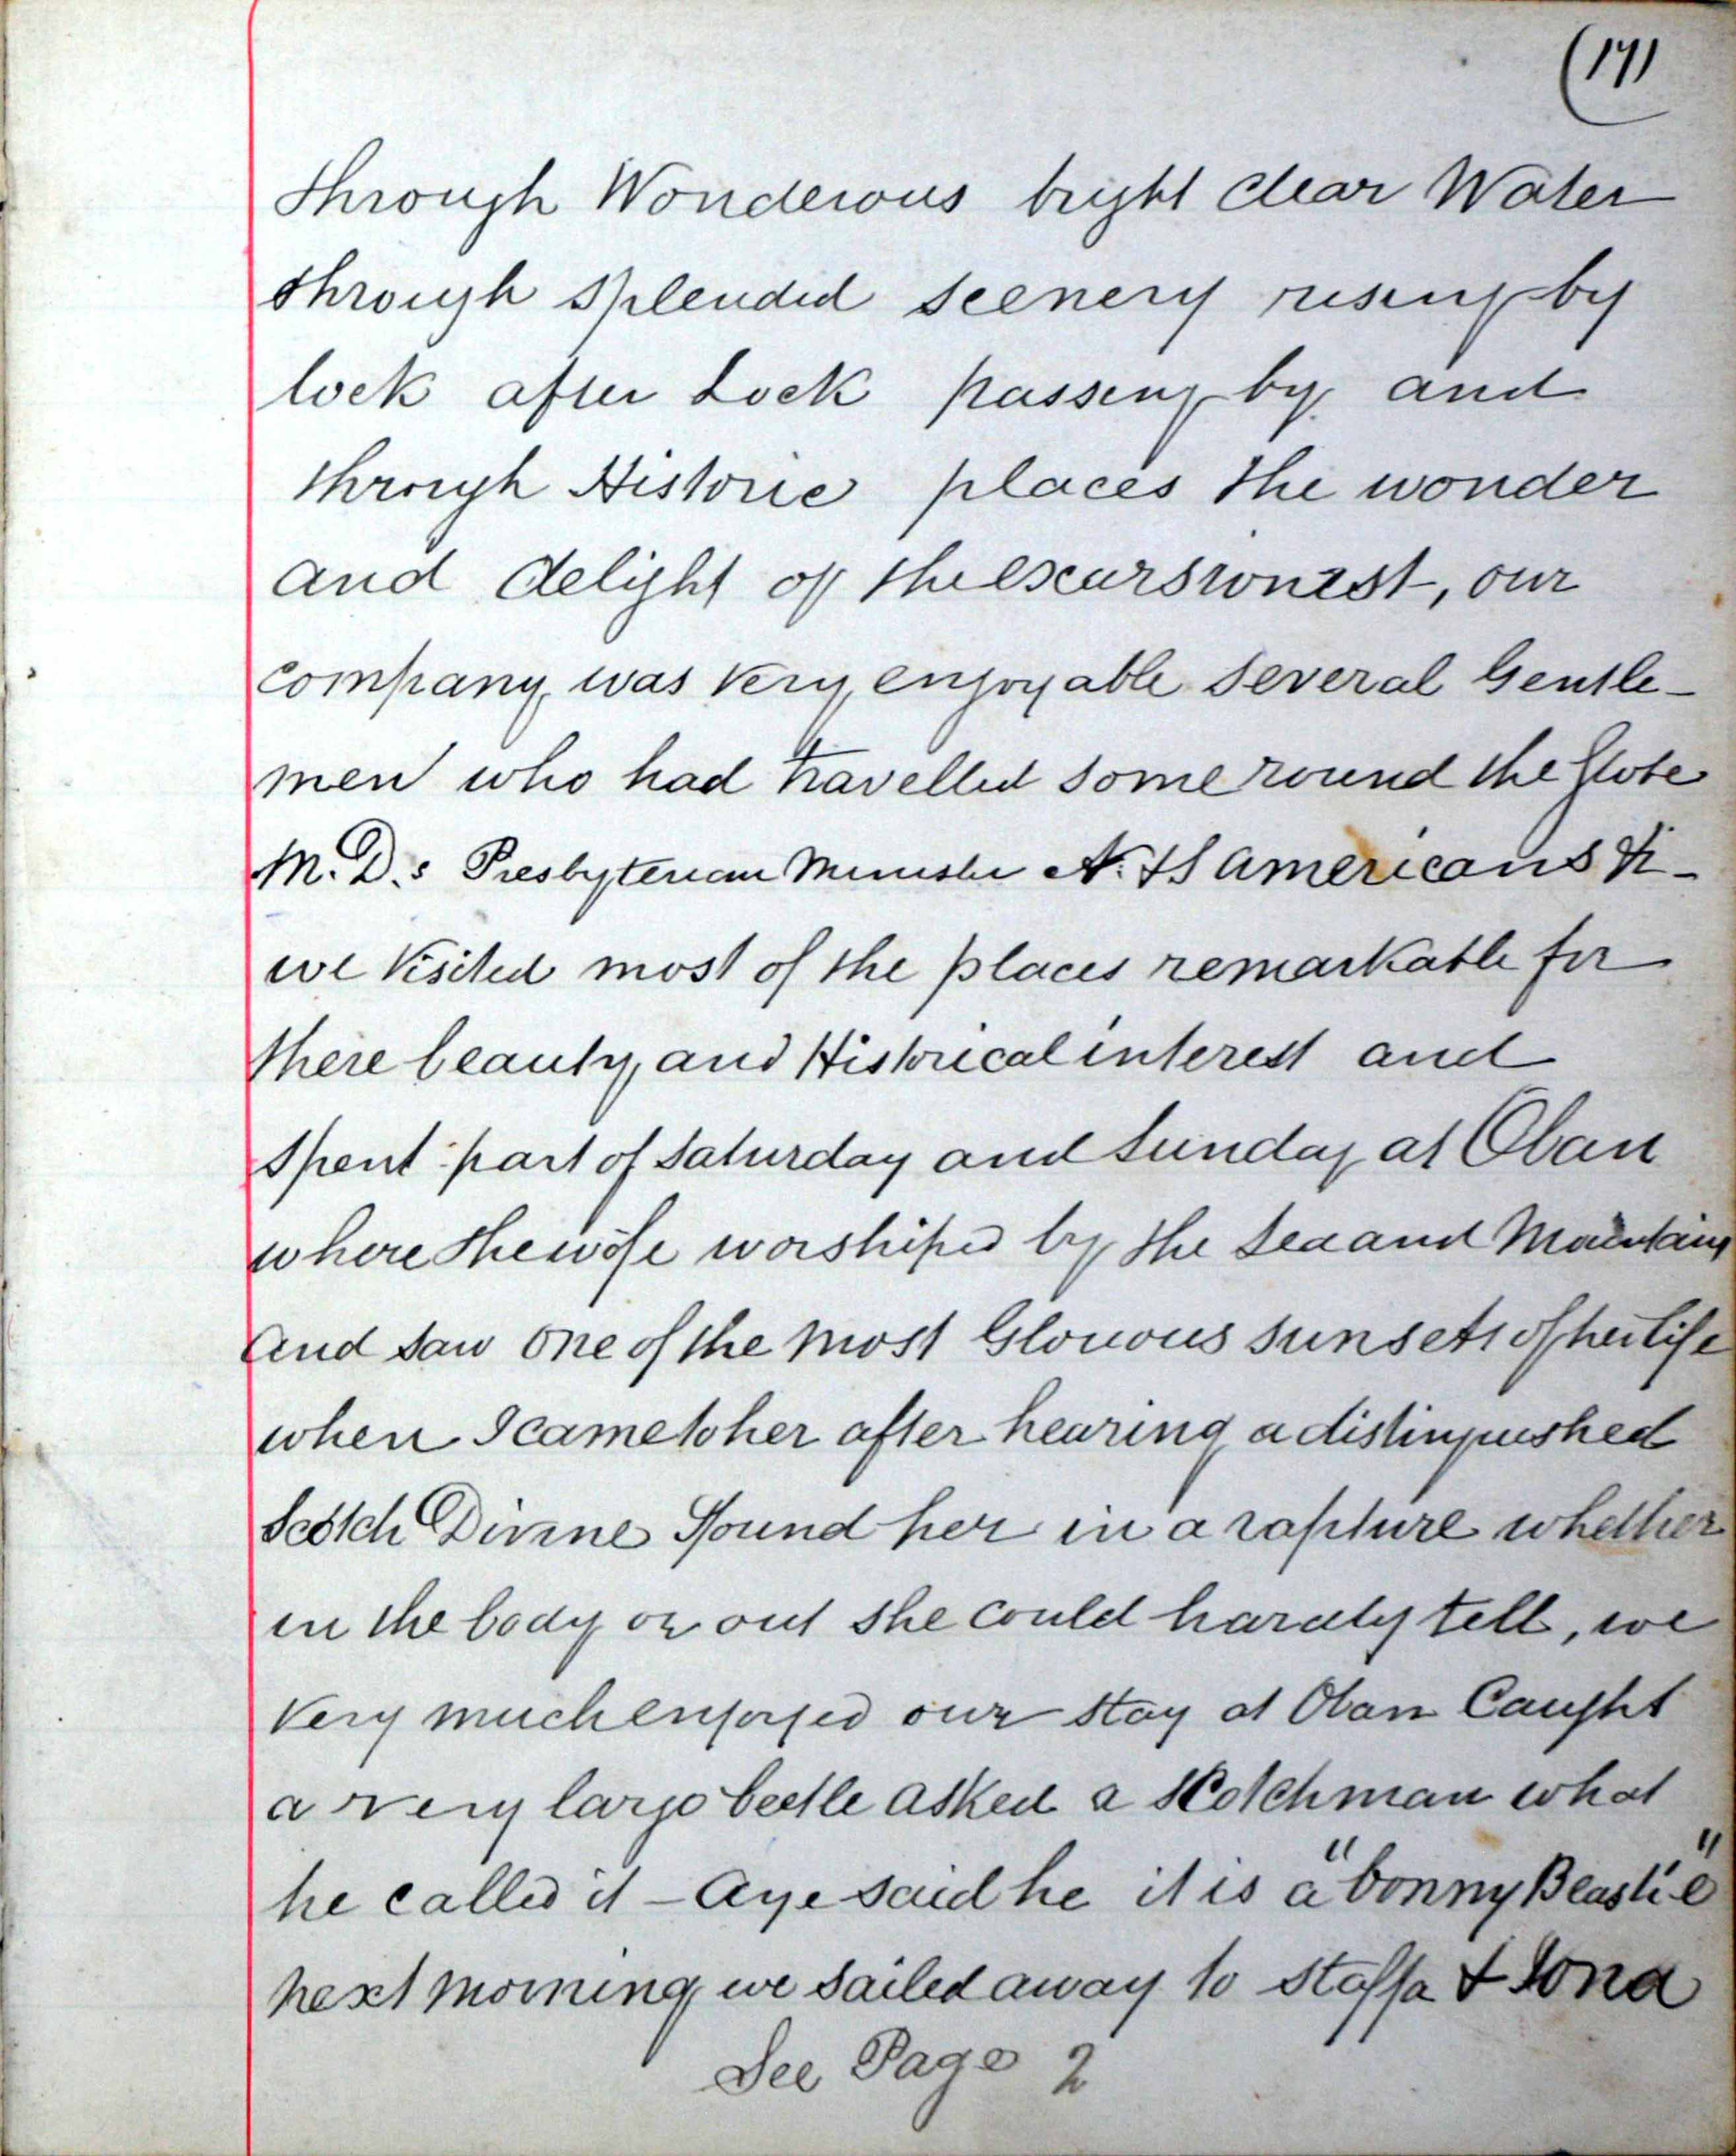 (171
through Wonderous bright clear Water
through splended scenery rising by
lock after Lock passing by and
through Historic places the wonder
and delight of the excursionist, our
company was very enjoyable several Gentle-
men who had travelled some round the Globe
M.D.s Presbyterian Minister N. & S Americans &c-
we visited most of the places remarkable for
there beauty and Historical interest and
spent part of Saturday and Sunday at Oban
where the wife worshiped by the Sea and Mountains
And saw one of the most Glorious sunsets of her life
when I came to her after hearing a distinguished
Scotch Divine found her in a rapture whether
in the body or out she could hardly tell, we
very much enjoyed our stay at Oban Caught
a very large beetle asked a Scotchman what
he called it - Aye said he it is a "bonny Beastie"
next morning we sailed away to Staffa & Iona
See Page 2